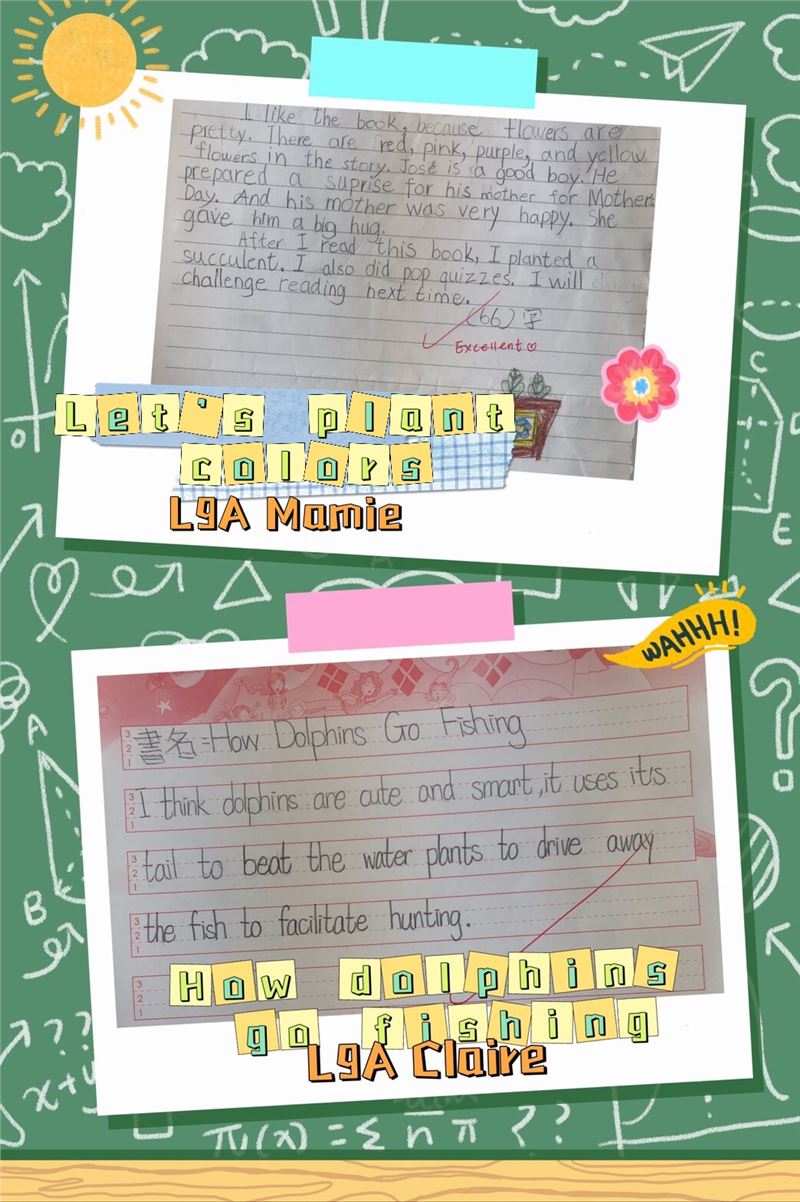 I like the book, because flowers are
pretty. There are red, pink, purple, and yellow
flowers in the story. José is a good boy. He
prepared a suprise for his mother for Mother's
Day. And his mother was very happy. She
gave him a big hug.
After I read this book, I planted a
succulent. I also did pop quizzes. I will
challenge reading next time.
(66)字
Excellent♡
Let's plant
colors
L9A Mamie
WAHHH!
3
2
1
書名=How Dolphins Go Fishing
3
2
1
I think dolphins are cute and smart,it uses it's
3
2
1
tail to beat the water plants to drive away
3
2
1
the fish to facilitate hunting.
3
2
1
How dolphins
go fishing
L9A Claire
C
0
E
A
B
???
x+y
π(x)=Σ n π ??